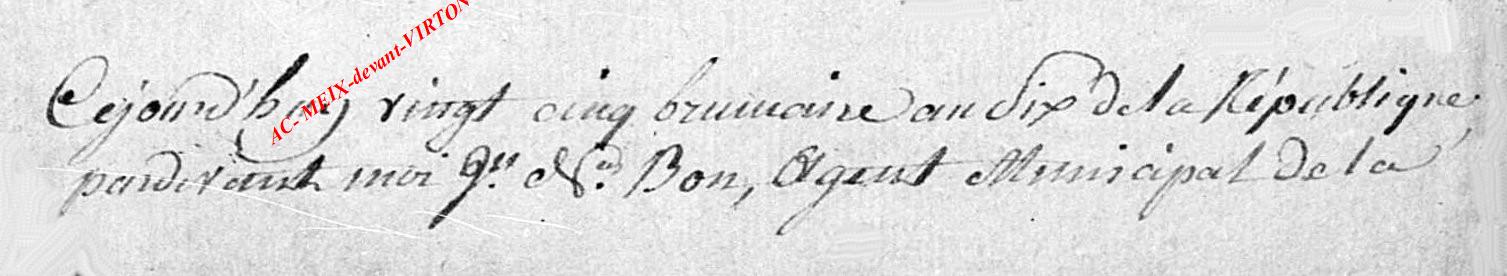 AC- MEIX-devant-VIRTON
Cejourd'huy vingt cinq brumaire an Six de la République
pardevant moi Jn. Ns. Bon, Agent Municipal de la